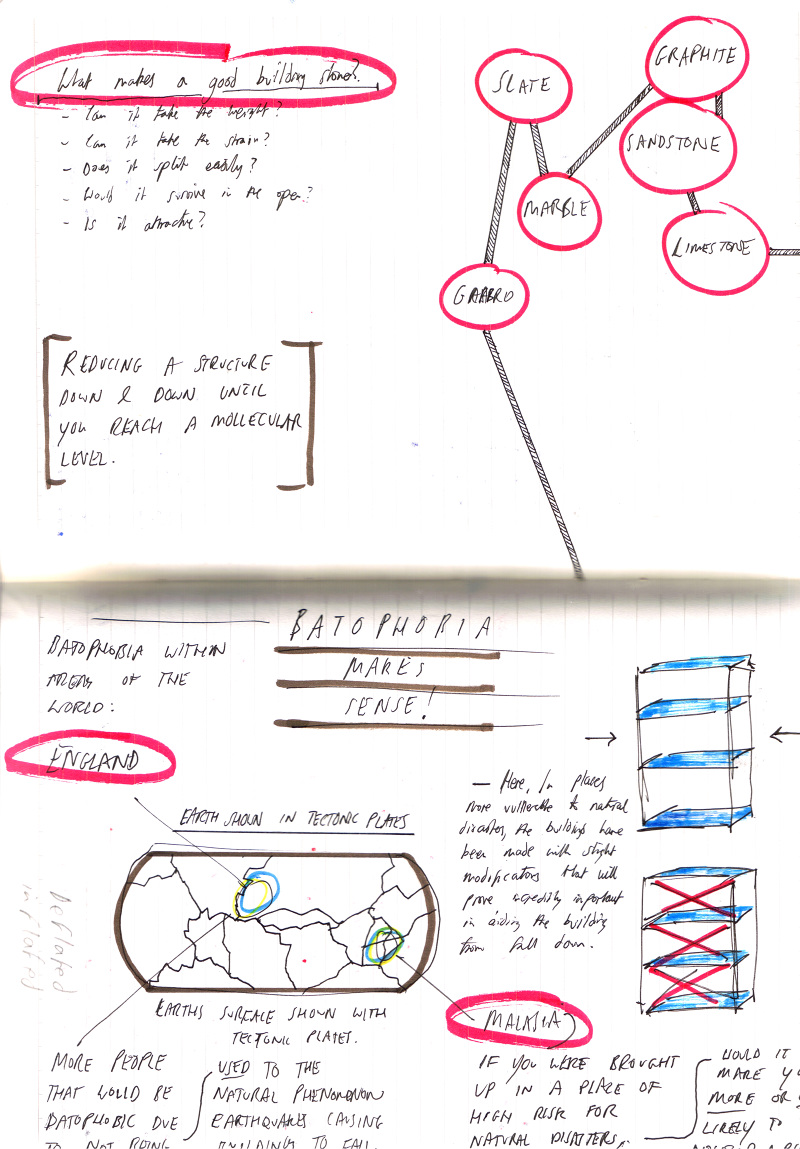 What makes a good building stone?
- Can it take the weight?
- Can it take the strain?
- Does it split easily?
- Would it survive in the open?
- Is it attractive?
SLATE
GRAPHITE
SANDSTONE
MARBLE
LIMESTONE
GABBRO
REDUCING A STRUCTURE
DOWN & DOWN UNTIL
YOU REACH A MOLLECULAR
LEVEL.
BATOPHOBIA
MAKES
SENSE!
BATOPHOBIA WITHIN
AREAS OF THE
WORLD:
ENGLAND
EARTH SHOWN IN TECTONIC PLATES
EARTHS SURFACE SHOWN WITH
TECTONIC PLATES.
Deflated
inflated
- Here, In places
more vulnerable to natural
disaster, the buildings have
been made with slight
modifications that will
prove
important
in aiding the building
from fall down.
MALASIA
MORE PEOPLE
THAT WOULD BE
BATOPHOBIC DUE
TO NOT BEING
USED TO THE
NATURAL PHENOMONON
EARTHQUAKES CAUSING
BUILDINGS TO FALL.
IF YOU WERE BROUGHT
UP IN A PLACE OF
HIGH RISK FOR
NATURAL DISATTERS,
WOULD IT
MAKE
MORE OR
LIKELY TO